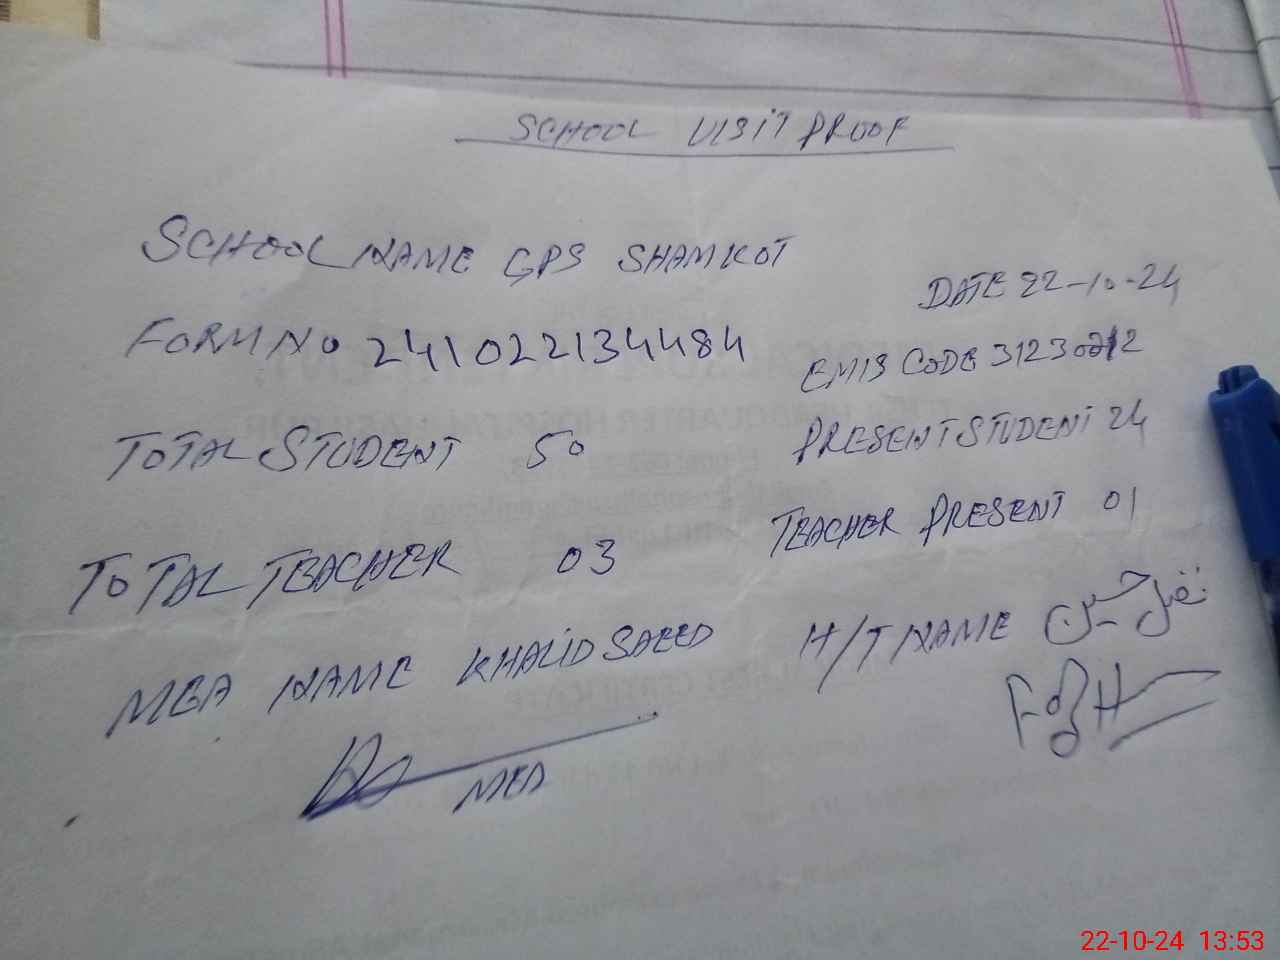 SCHOOL VISIT PROOF
SCHOOL NAME GPS SHAMKOT
DATE 22-10-24
FORM NO 241022134484
EMIS CODE
TOTAL STUDENT 50
PRESENT STUDENT 24
TOTAL TEACHER 03
TEACHER PRESENT 01
MEA NAME KHALID SAEED
H/T NAME
MEA
22-10-24 13:53